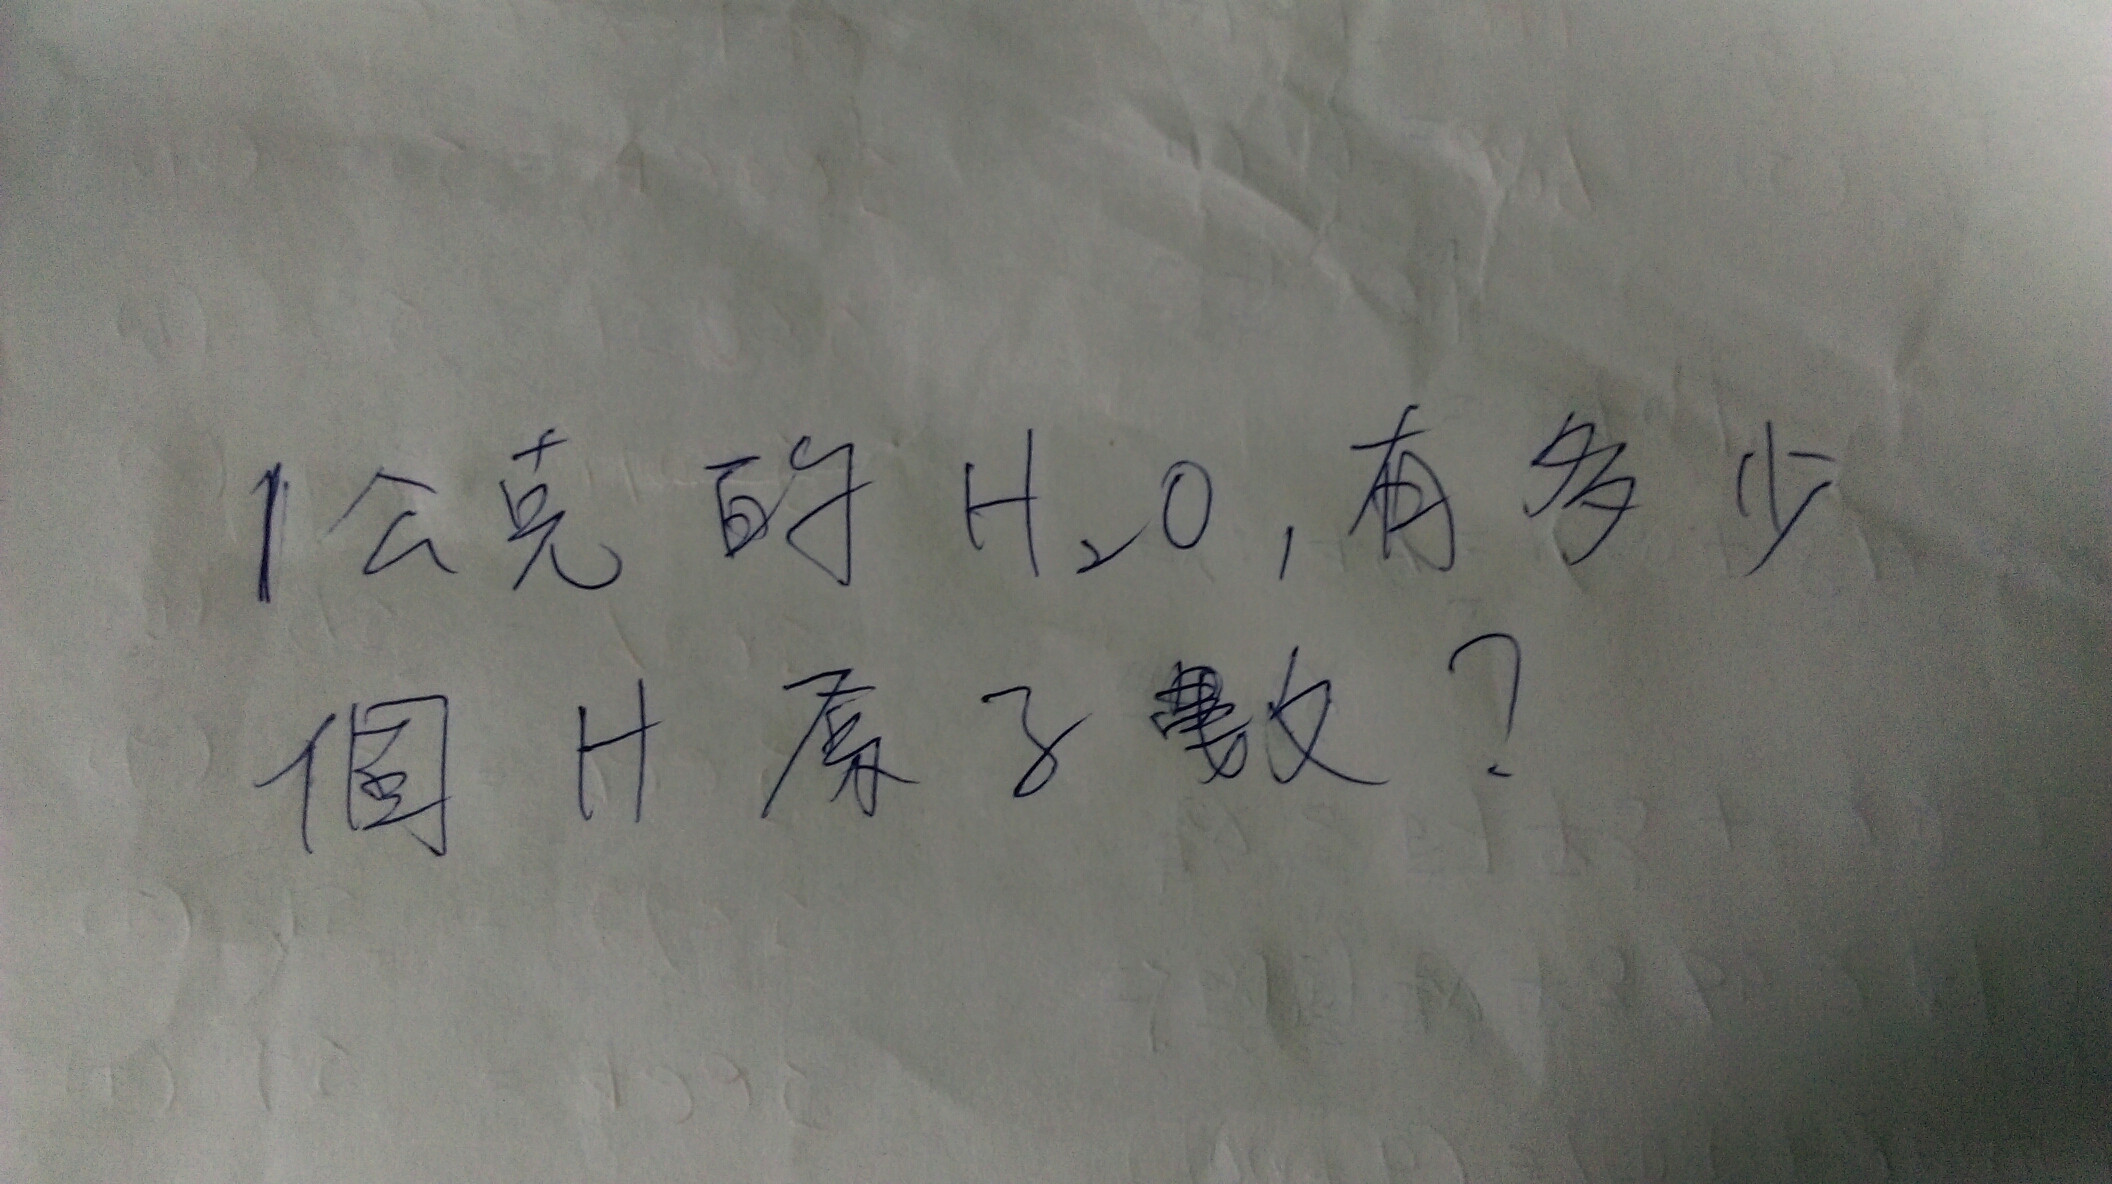 1公克的H₂O,有多少
個H原子數?